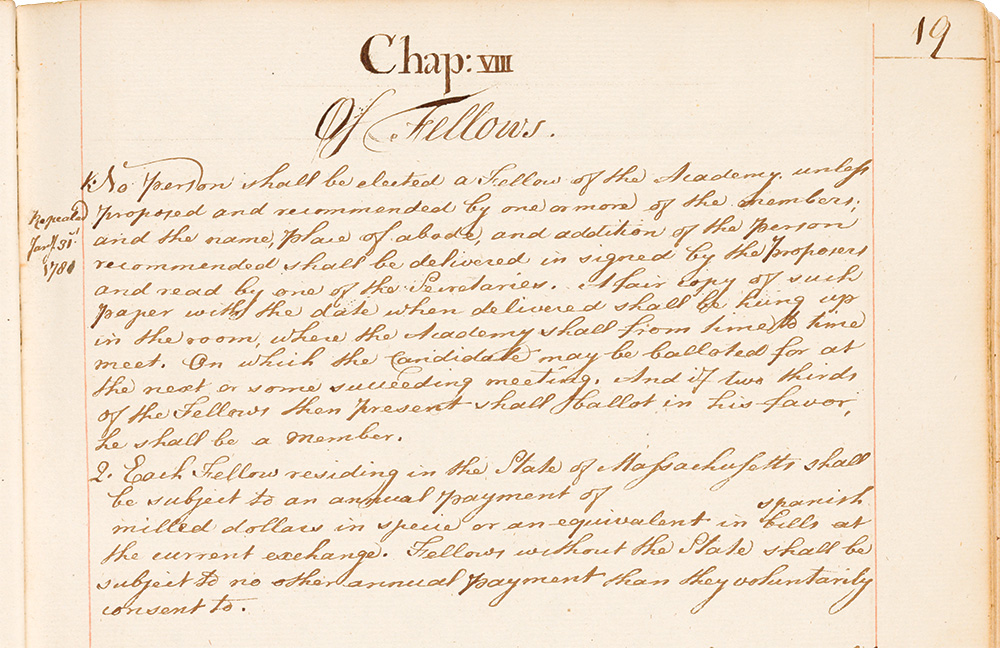 19
Chap: VIII
Of Fellows.
1. No Person shall be elected a Fellow of the Academy unless
proposed and recommended by one or more of the members;
and the name, place of abode, and addition of the Person
recommended shall be delivered in signed by the Proposers
and read by one of the Secretaries. A fair copy of such
paper with the date when delivered shall be hung up
in the room, where the Academy shall from time to time
meet. On which the Candidate may be balloted for at
the next or some succeeding meeting. And if two thirds
of the Fellows then present shall ballot in his favor,
he shall be a member.
Repealed
Jany. 31st
1781
2. Each Fellow residing in the State of Massachusetts shall
be subject to an annual payment of spanish
milled dollars in specie or an equivalent in bills at
the current exchange. Fellows without the State shall be
subject to no other annual payment than they voluntarily
consent to.